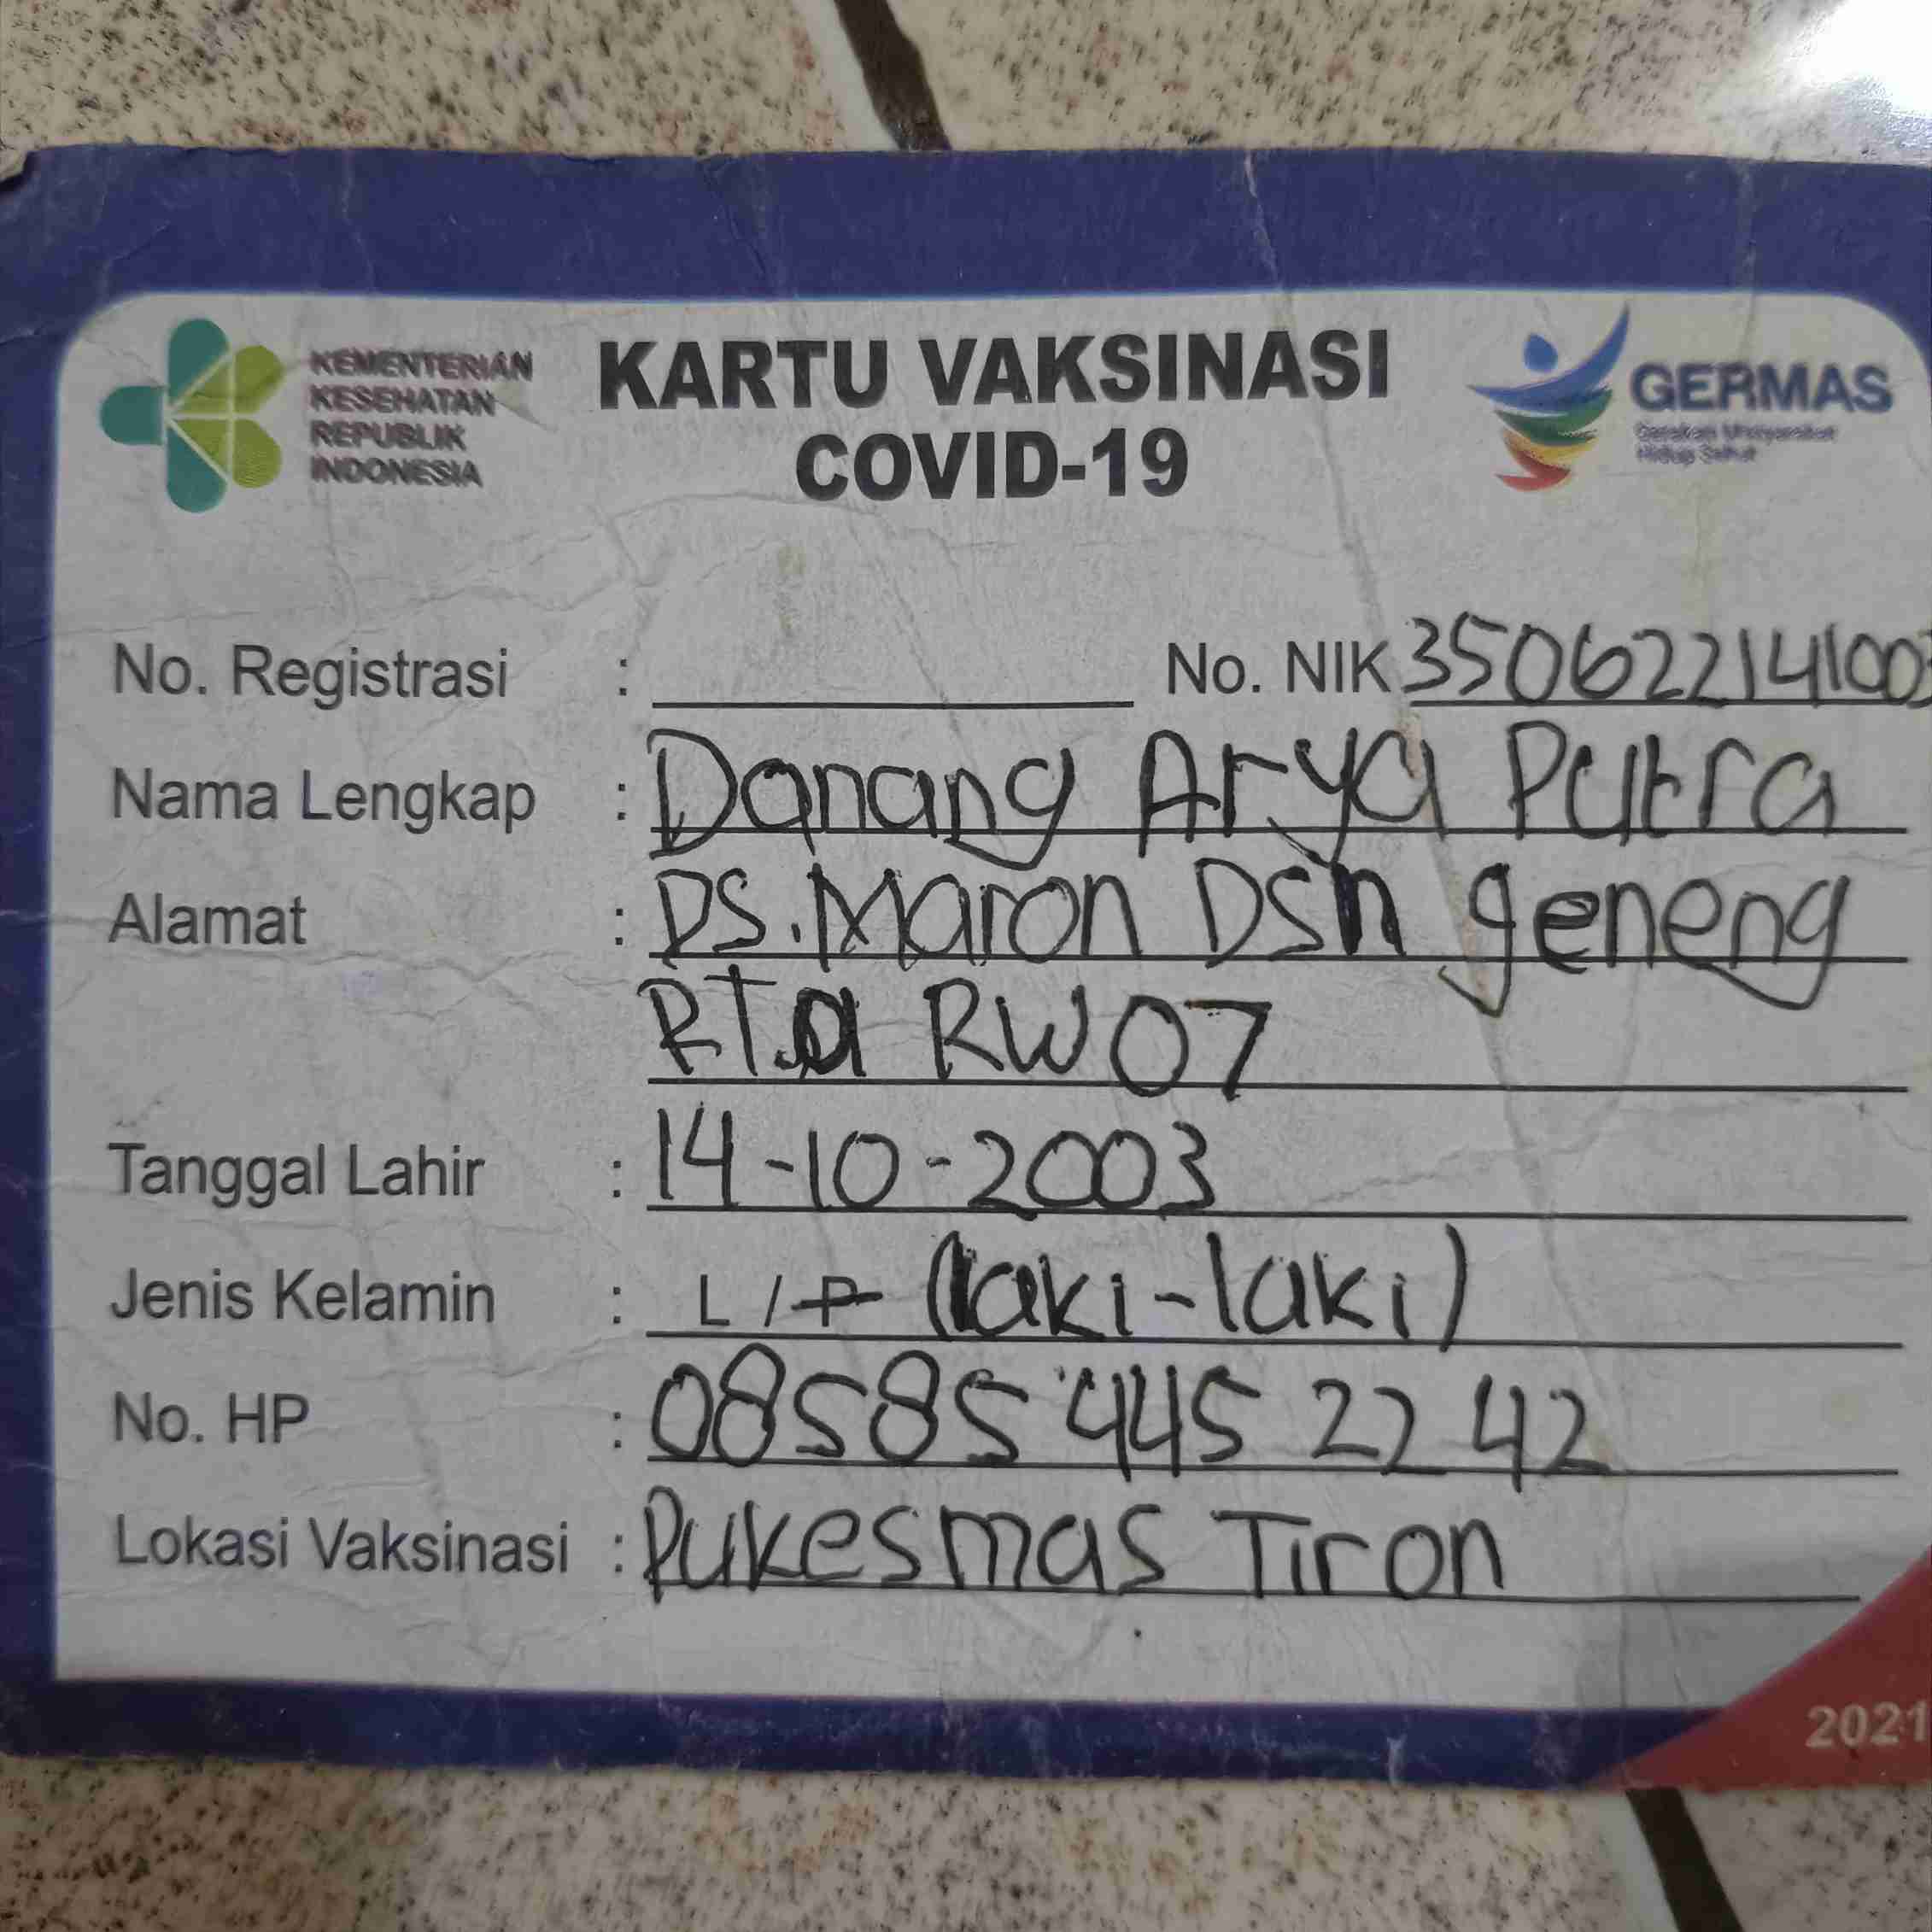 KEMENTERIAN
KESEHATAN
REPUBLIK
INDONESIA
KARTU VAKSINASI
COVID-19
GERMAS
Gerakan Masyarakat
Hidup Sehat
No. Registrasi : No. NIK 350622141003
Nama Lengkap : Danang Arya Putra
Alamat : Ds. Maron Dsn geneng
RT RW 07
Tanggal Lahir : 14-10-2003
Jenis Kelamin : L / P (laki-laki)
No. HP : 08585 445 22 42
Lokasi Vaksinasi : Pukesmas Tiron
2021